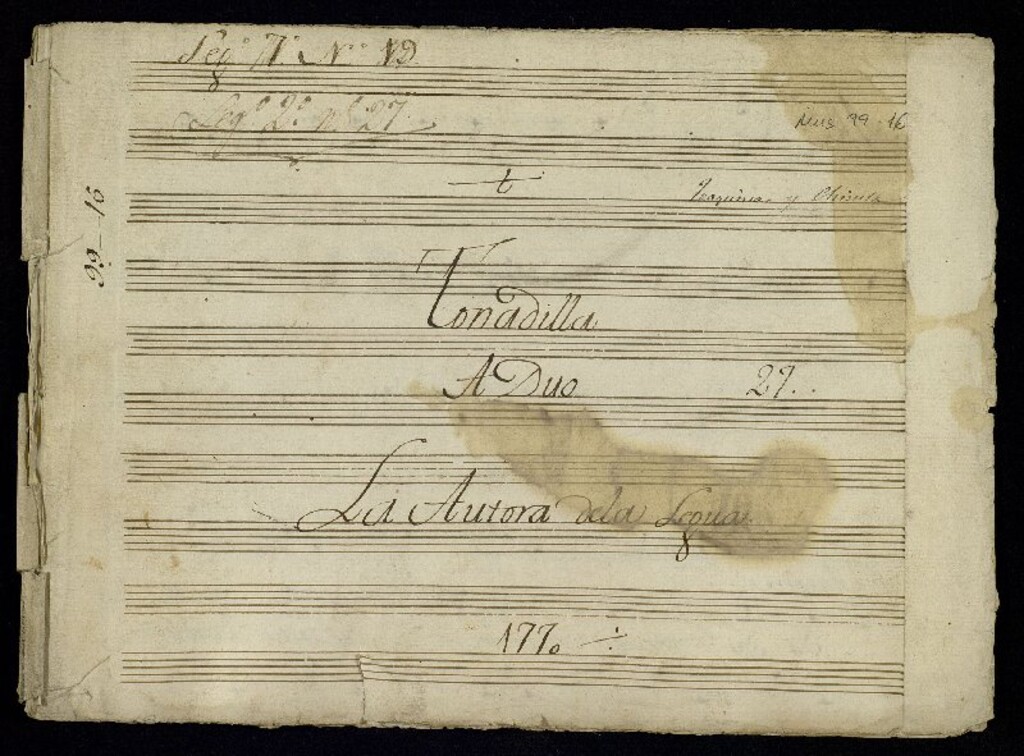 Leg.º 7.º N.º 19
Leg.º 2.º n.º 27.
Mus 99-16
t
Joaquina y Chinita
99-16
Tonadilla
A Duo 27..
La Autora dela Legua
1770